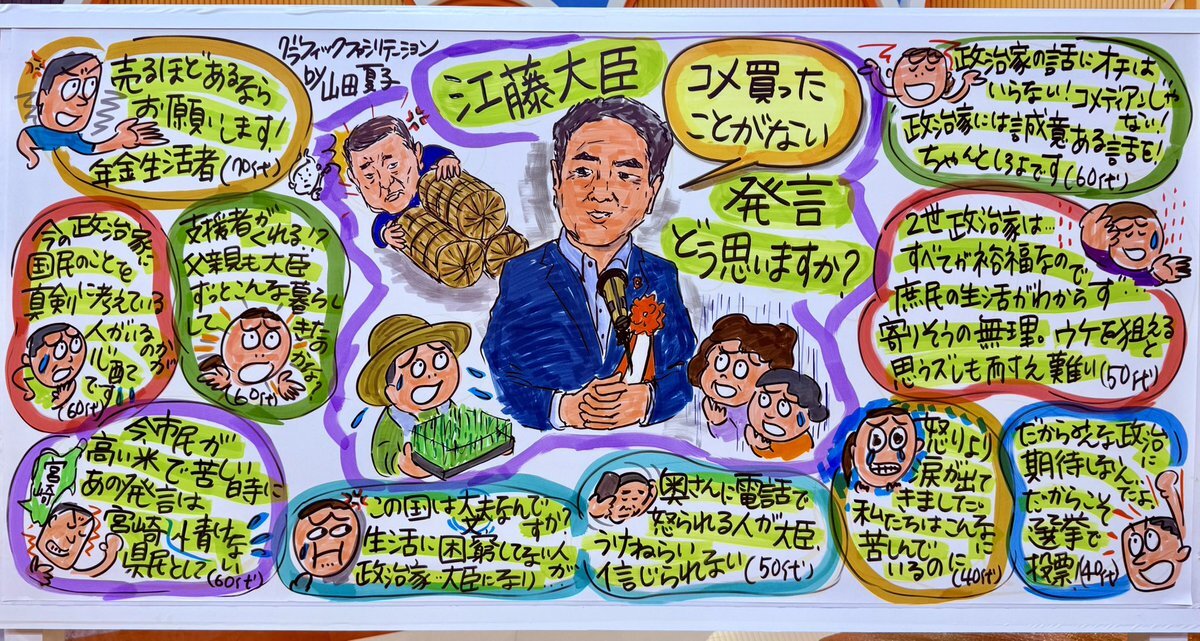 グラフィックファシリテーション
by山田夏子
江藤大臣
コメ買った
ことがない
発言
どう思いますか?
売るほどあるなら
お願いします!
年金生活者(70代)
今の政治家に
国民のことを
真剣に考えている
人がいる
のか
心配
です(60代)
支援者がくれる!?
父親も大臣
ずっとこんな暮らし
して
きた
のかな
(60代)
今市民が
高い米で苦しい時に
あの発言は
宮崎
宮崎
県民として
情けない
(60代)
この国は大丈夫なんで
すか?
生活に困窮してない人が
政治家…大臣になり
奥さんに電話で
怒られる人が大臣、
うけねらい
信じられない(50代)
怒りより
涙が出て
きました…
私たちはこんなに
苦しんで
いるのに(40代)
だからみんな政治に
期待しなくなるんだよ
だからこそ
選挙で
投票(40代)
政治家の話にオチは
いらない!コメディアンじゃ
ない!
政治家には誠意ある話を!
ちゃんとしろよです(60代)
2世政治家は…
すべてが裕福なので
庶民の生活がわからず…
寄りそうの無理。ウケを狙えると
思うズレも耐え難い(50代)